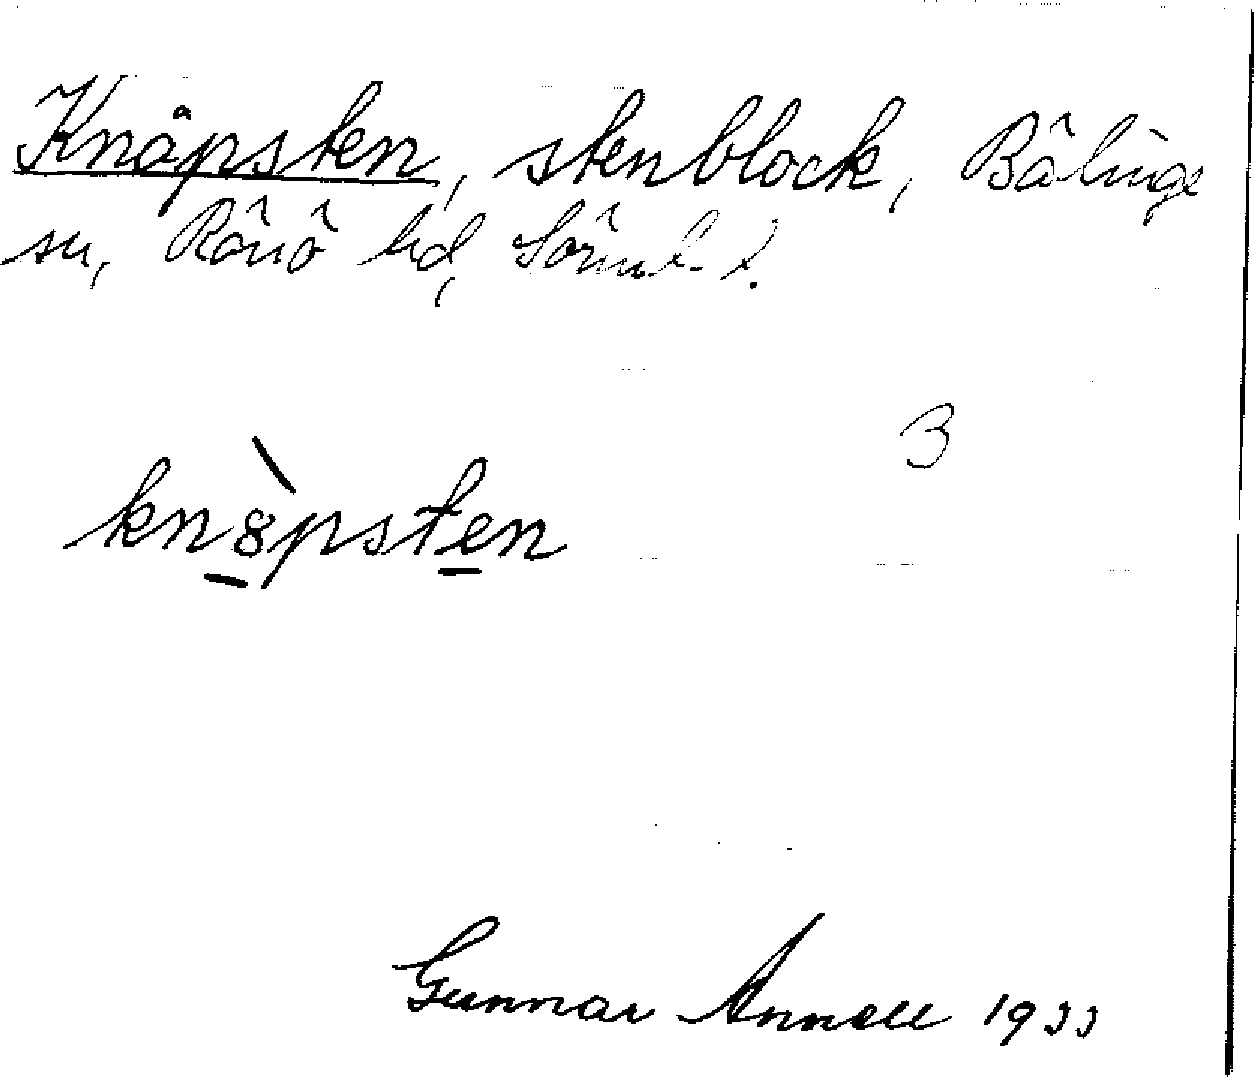 Knåpsten, stenblock, Bälinge
sn, Rönö hd, Sörml. l.
3
knåpsten
Gunnar Annell 1933